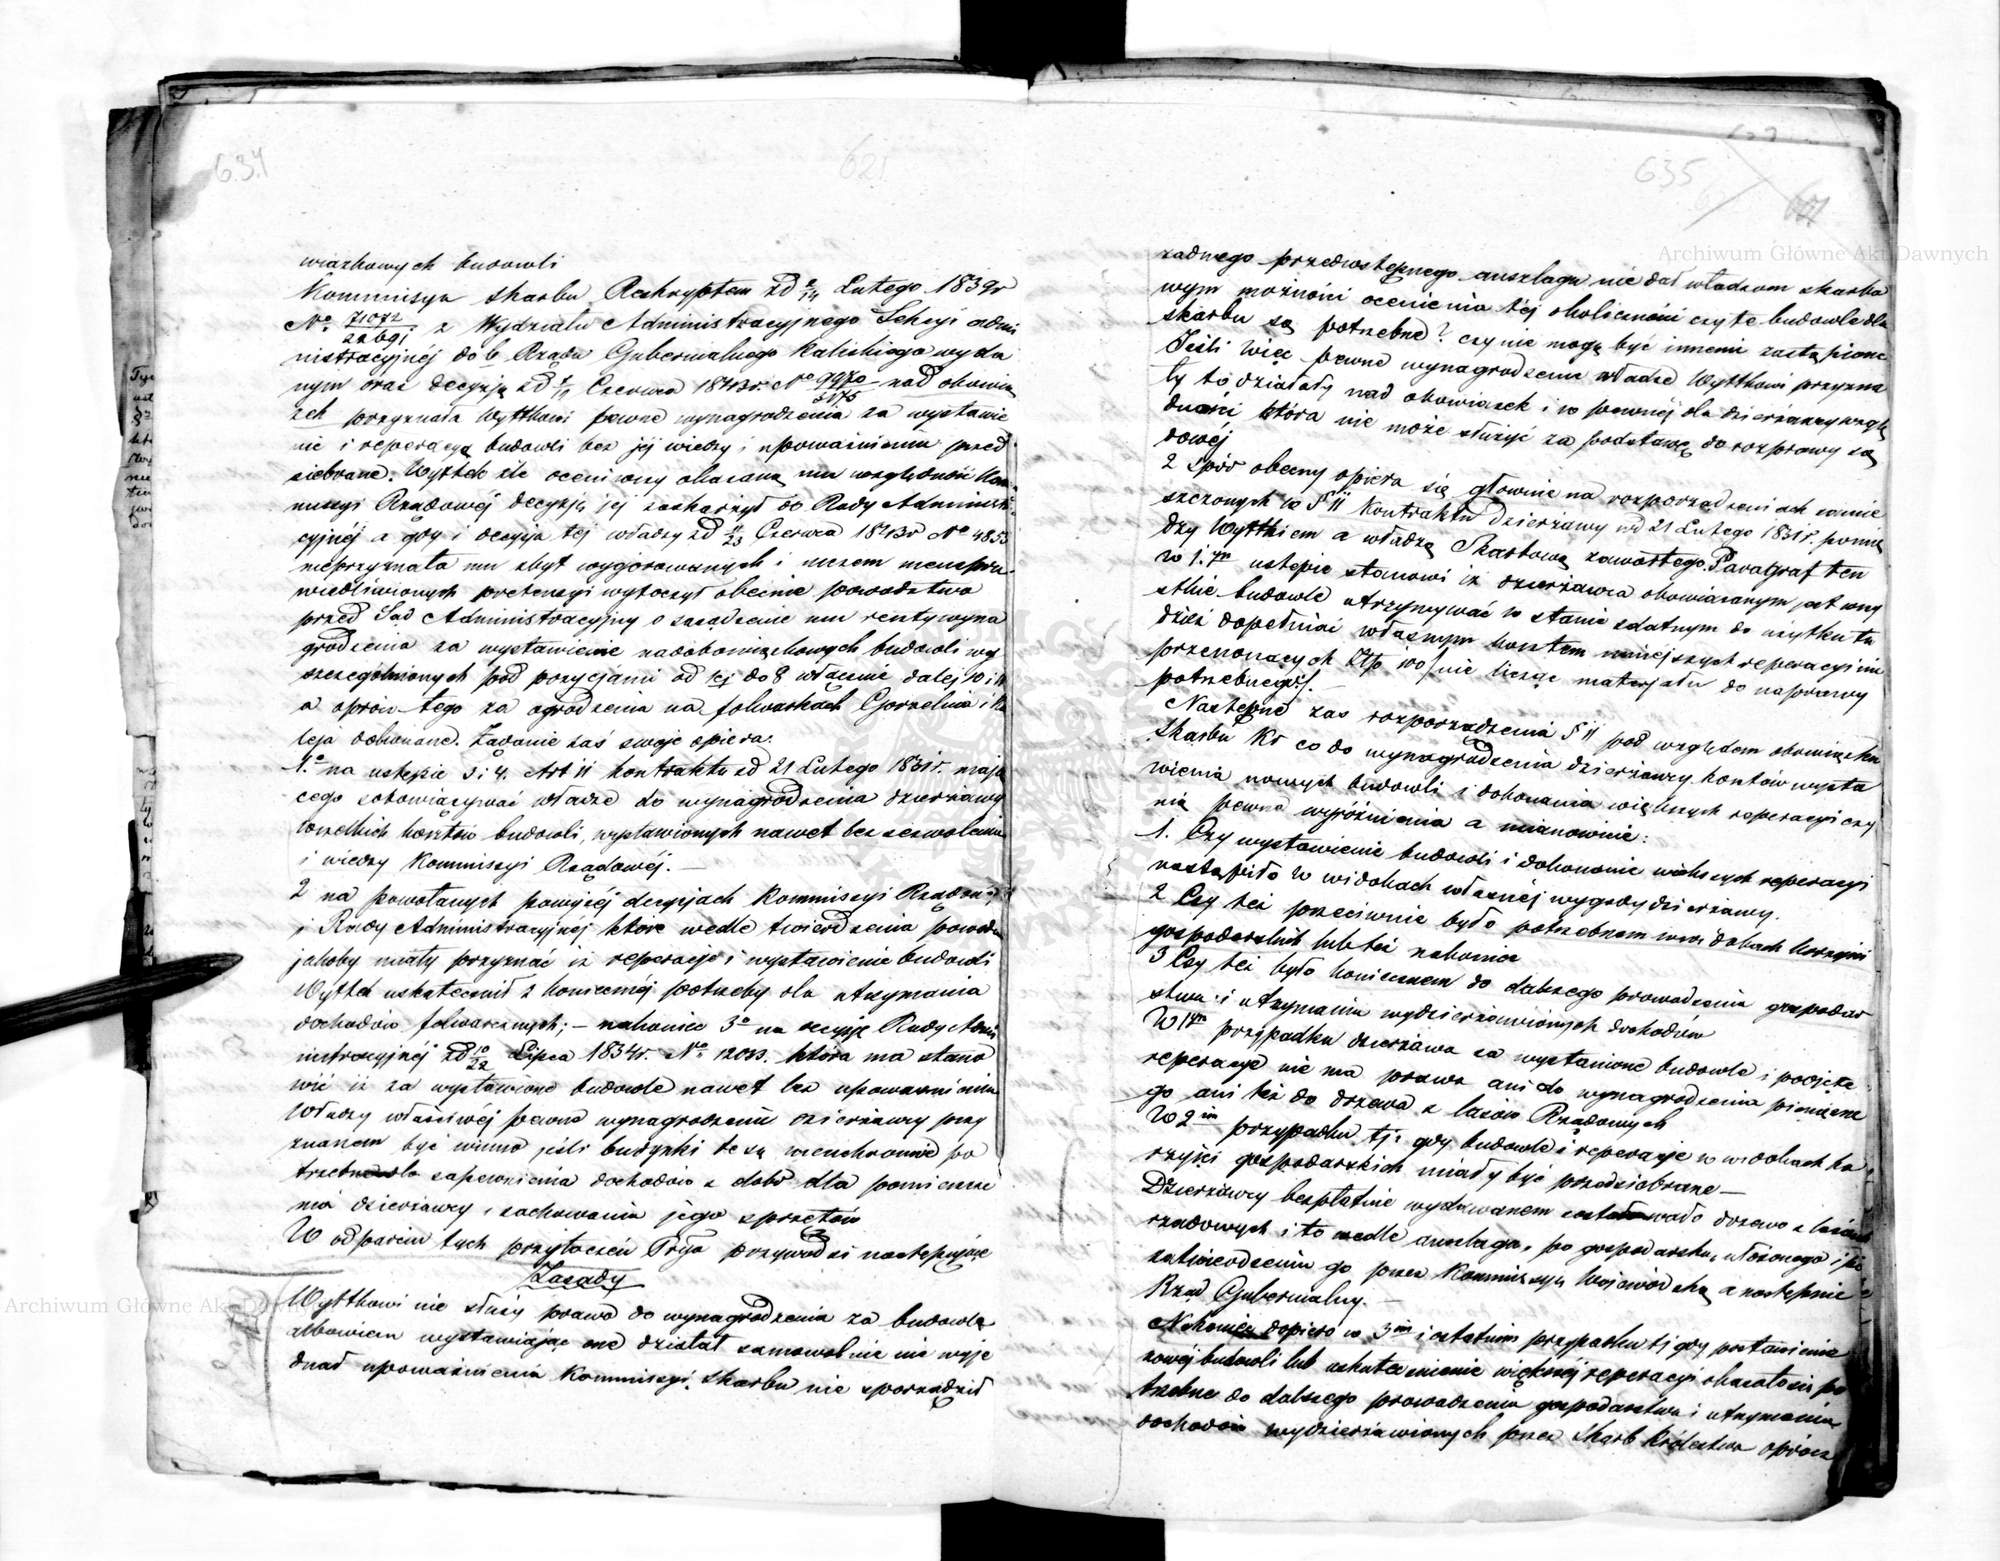 634
621
wiązkowych budowli
Kommisya Skarbu Reskryptem zd 2/14 Lutego 1839r
No. 71072/22691 z Wydziału Administracyjnego Sekcyi admi
nistracyjnéj do b. Rządu Gubernialnego Kaliskiego wyda
nym oraz decyzją zd Czerwca 1843r. No 9970/3175 nad obowią
zek przyznała Wyttkowi pewne wynagrodzenia za wystawie
nie i reperacyą budowli bez jej wiedzy i upoważnienia przed
siebrane. Wyttek źle oceniwszy okazaną mu względność Kom
missyi Rządowéj decyzją jej zaskarżył do Rady Administra
cyjnéj a gdy i decyzja tej władzy zd 11/23 Czerwca 1843r No 4853
nieprzyznała mu zbyt wygórowanych i niczem nieuspra
wiedliwionych pretensyi wytoczył obecnie powództwo
przed Sąd Administracyjny o zasądzenie mu renty wyna
grodzenia za wystawienie nadobowiązkowych budowli wy
szczególnionych pod pozycjami od 1ej do 8 włącznie dalej 10 i 11
a oprócz tego za ogrodzenia na folwarkach Gorzelnia i
leja dokonane. Żądanie zaś swoje opiera:
1.o na ustępie 3 i 4. Art 11 kontraktu zd 21 Lutego 1831r. mają
cego zobowiązywać władze do wynagrodzenia dzierżawcy
wszelkich kosztów budowli, wystawionych nawet bez zezwolenia
i wiedzy Kommissyi Rządowéj. —
2 na powołanych powyżéj decyzjach Kommissyi Rządowéj
i Rady Administracyjnéj które wedle twierdzenia powoda
jakoby miały przyznać iż reperacje i wystawienie budowli
Wyttek uskutecznił z koniecznéj potrzeby dla utrzymania
dochodów folwarcznych; — nakoniec 3o na decyzje Rady Admi
nistracyjnéj zd 10/22 Lipca 1834r. No. 12023. która ma stano
wić iż za wystawione budowle nawet bez upoważnienia
Władzy właściwéj pewne wynagrodzenie dzierżawcy przy
znanem być winno jeśli budynki te są nieuchronnie po
trzebne dla zapewnienia dochodów z dóbr dla pomieszcze
nia dzierżawcy i zachowania jego sprzętów
W odparciu tych przytoczeń Prya przywodzi następujące
Zasady
Wyttkowi nie służy prawo do wynagrodzenia za budowlą
albowiem wystawiając one działał samowolnie nie wyje
dnał upoważnienia Kommissyi Skarbu nie sporządził
635
601
żadnego przedwstępnego anszlagu nie dał władzom skarbo
wym możności ocenienia téj okoliczności czy te budowle dla
skarbu są potrzebne? czy nie mogą być innemi zastąpione
Jeśli więc pewne wynagrodzenie władze Wyttkowi przyzna
ły to działały nad obowiązek i w pewnéj dla dzierżawcy wzglę
dności która nie może służyć za podstawę do rozprawy są
dowéj
2 Spór obecny opiera się głównie na rozporządzeniach umie
szczonych w § 11 Kontraktu dzierżawy zd 21 Lutego 1831r. pomię
dzy Wyttkiem a władzą Skarbową zawartego. Paragraf ten
w 1.ym ustępie stanowi iż dzierżawca obowiązanym jest wszy
stkie budowle utrzymywać w stanie zdatnym do użytku tu
dzież dopełniać własnym kosztem mniejszych reperacyi nie
przenoszących Złp 100 / nie licząc materjału do naprawy
potrzebnego/. —
Następne zaś rozporządzenia § 11 pod względem obowiązku
Skarbu Kr co do wynagrodzenia dzierżawcy kosztów wysta
wienia nowych budowli i dokonania większych reperacyi czy
nią pewne wyróżnienia a mianowicie:
1. Czy wystawienie budowli i dokonanie większych reperacyi
nastąpiło w widokach własnéj wygody dzierżawcy.
2 Czy też przeciwnie było potrzebnem w widokach korzyści
gospodarskich lub też nakoniec
3 Czy też było koniecznem do dalszego prowadzenia gospodar
stwa i utrzymania wydzierżawionych dochodów
W 1ym przypadku dzierżawca za wystawione budowle i podjęte
reperacje nie ma prawa ani do wynagrodzenia pieniężne
go ani też do drzewa z lasów Rządowych
W 2im przypadku tj: gdy budowle i reperacje w widokach ko
rzyści gospodarskich miały być przedsiebrane —
Dzierżawcy bezpłatnie wydawanem zostało drzewo z lasów
rządowych i to wedle anszlagu, po gospodarsku, ułożonego i po
zatwierdzeniu go przez Kommissyą Wojewódzką a następnie
Rząd Gubernialny. —
Nakoniec dopiero w 3im i ostatnim przypadku tj gdy postawienie
nowéj budowli lub uskutecznienie większéj reperacyi okazało się po
trzebne do dalszego prowadzenia gospodarstwa i utrzymania
dochodów wydzierżawionych przez Skarb Królestwa oprócz
Archiwum Główne Akt Dawnych
Archiwum Główne Akt Dawnych